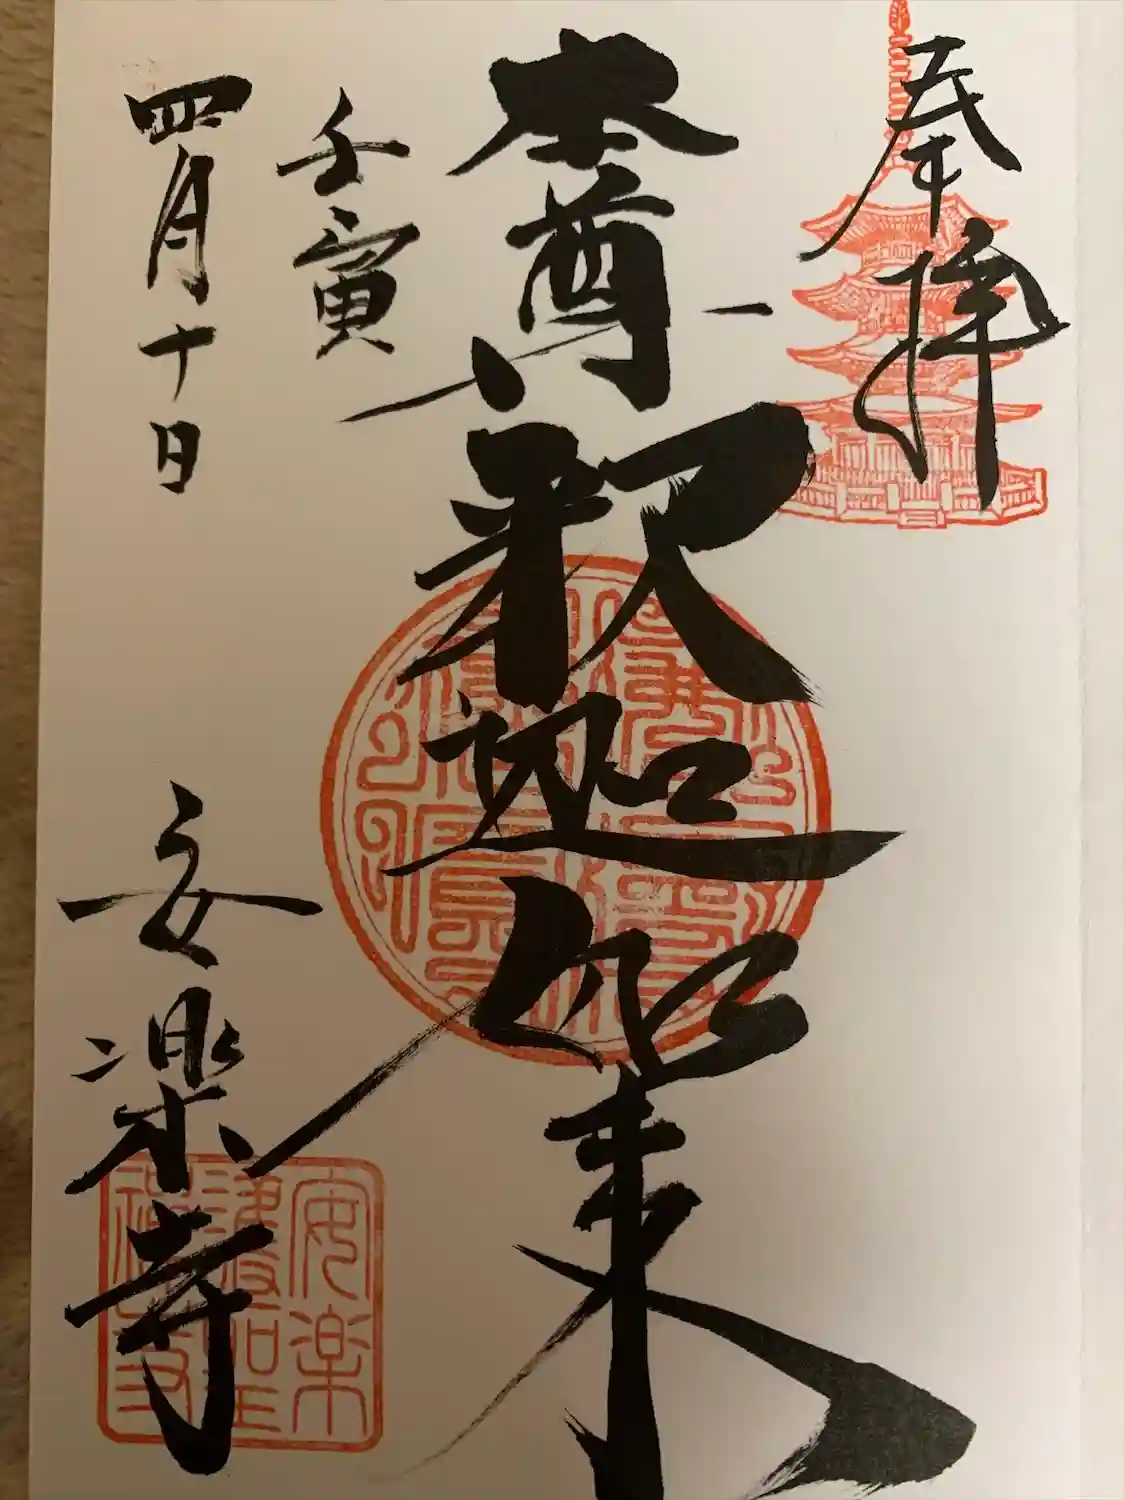 奉拝
本尊
釈迦如来
壬寅
四月十日
安楽寺
安楽